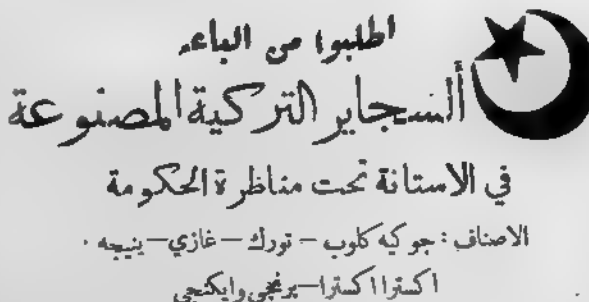 اطلبوا من الباعة
ألسجاير التركية المصنوعة
في الاستانة تحت مناظرة الحكومة
الاصناف : جوكيه كلوب – تورك – غازي – ينيجه .
اكسترا اكسترا – برنجي وايكنجي